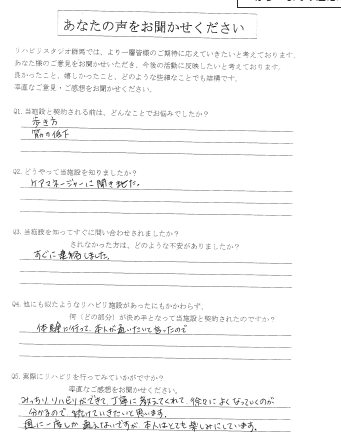 あなたの声をお聞かせください
リハビリスタジオ群馬では、より一層皆様のご期待に応えていきたいと考えております。
あなた様のご意見をお聞かせいただき、今後の活動に反映したいと考えております。
良かったこと、嬉しかったこと、どのような些細なことでも結構です。
率直なご意見・ご感想をお聞かせください。
Q1. 当施設と契約される前は、どんなことでお悩みでしたか？
歩き方
筋力低下
Q2. どうやって当施設を知りましたか？
ケアマネージャーに聞きました。
Q3. 当施設を知ってすぐに問い合わせされましたか？
されなかった方は、どのような不安がありましたか？
すぐに連絡しました。
Q4. 他にも似たようなリハビリ施設があったにもかかわらず、
何（どの部分）が決め手となって当施設と契約されたのですか？
体験に行って、本人が通いたいと言ったので
Q5. 実際にリハビリを行ってみていかがですか？
率直なご感想をお聞かせください。
みっちりリハビリができて、丁寧に教えてくれて 徐々によくなっていくのが
分かるので、続けていきたいと思います。
週に一度しか 通えないですが 本人はとても楽しみにしています。